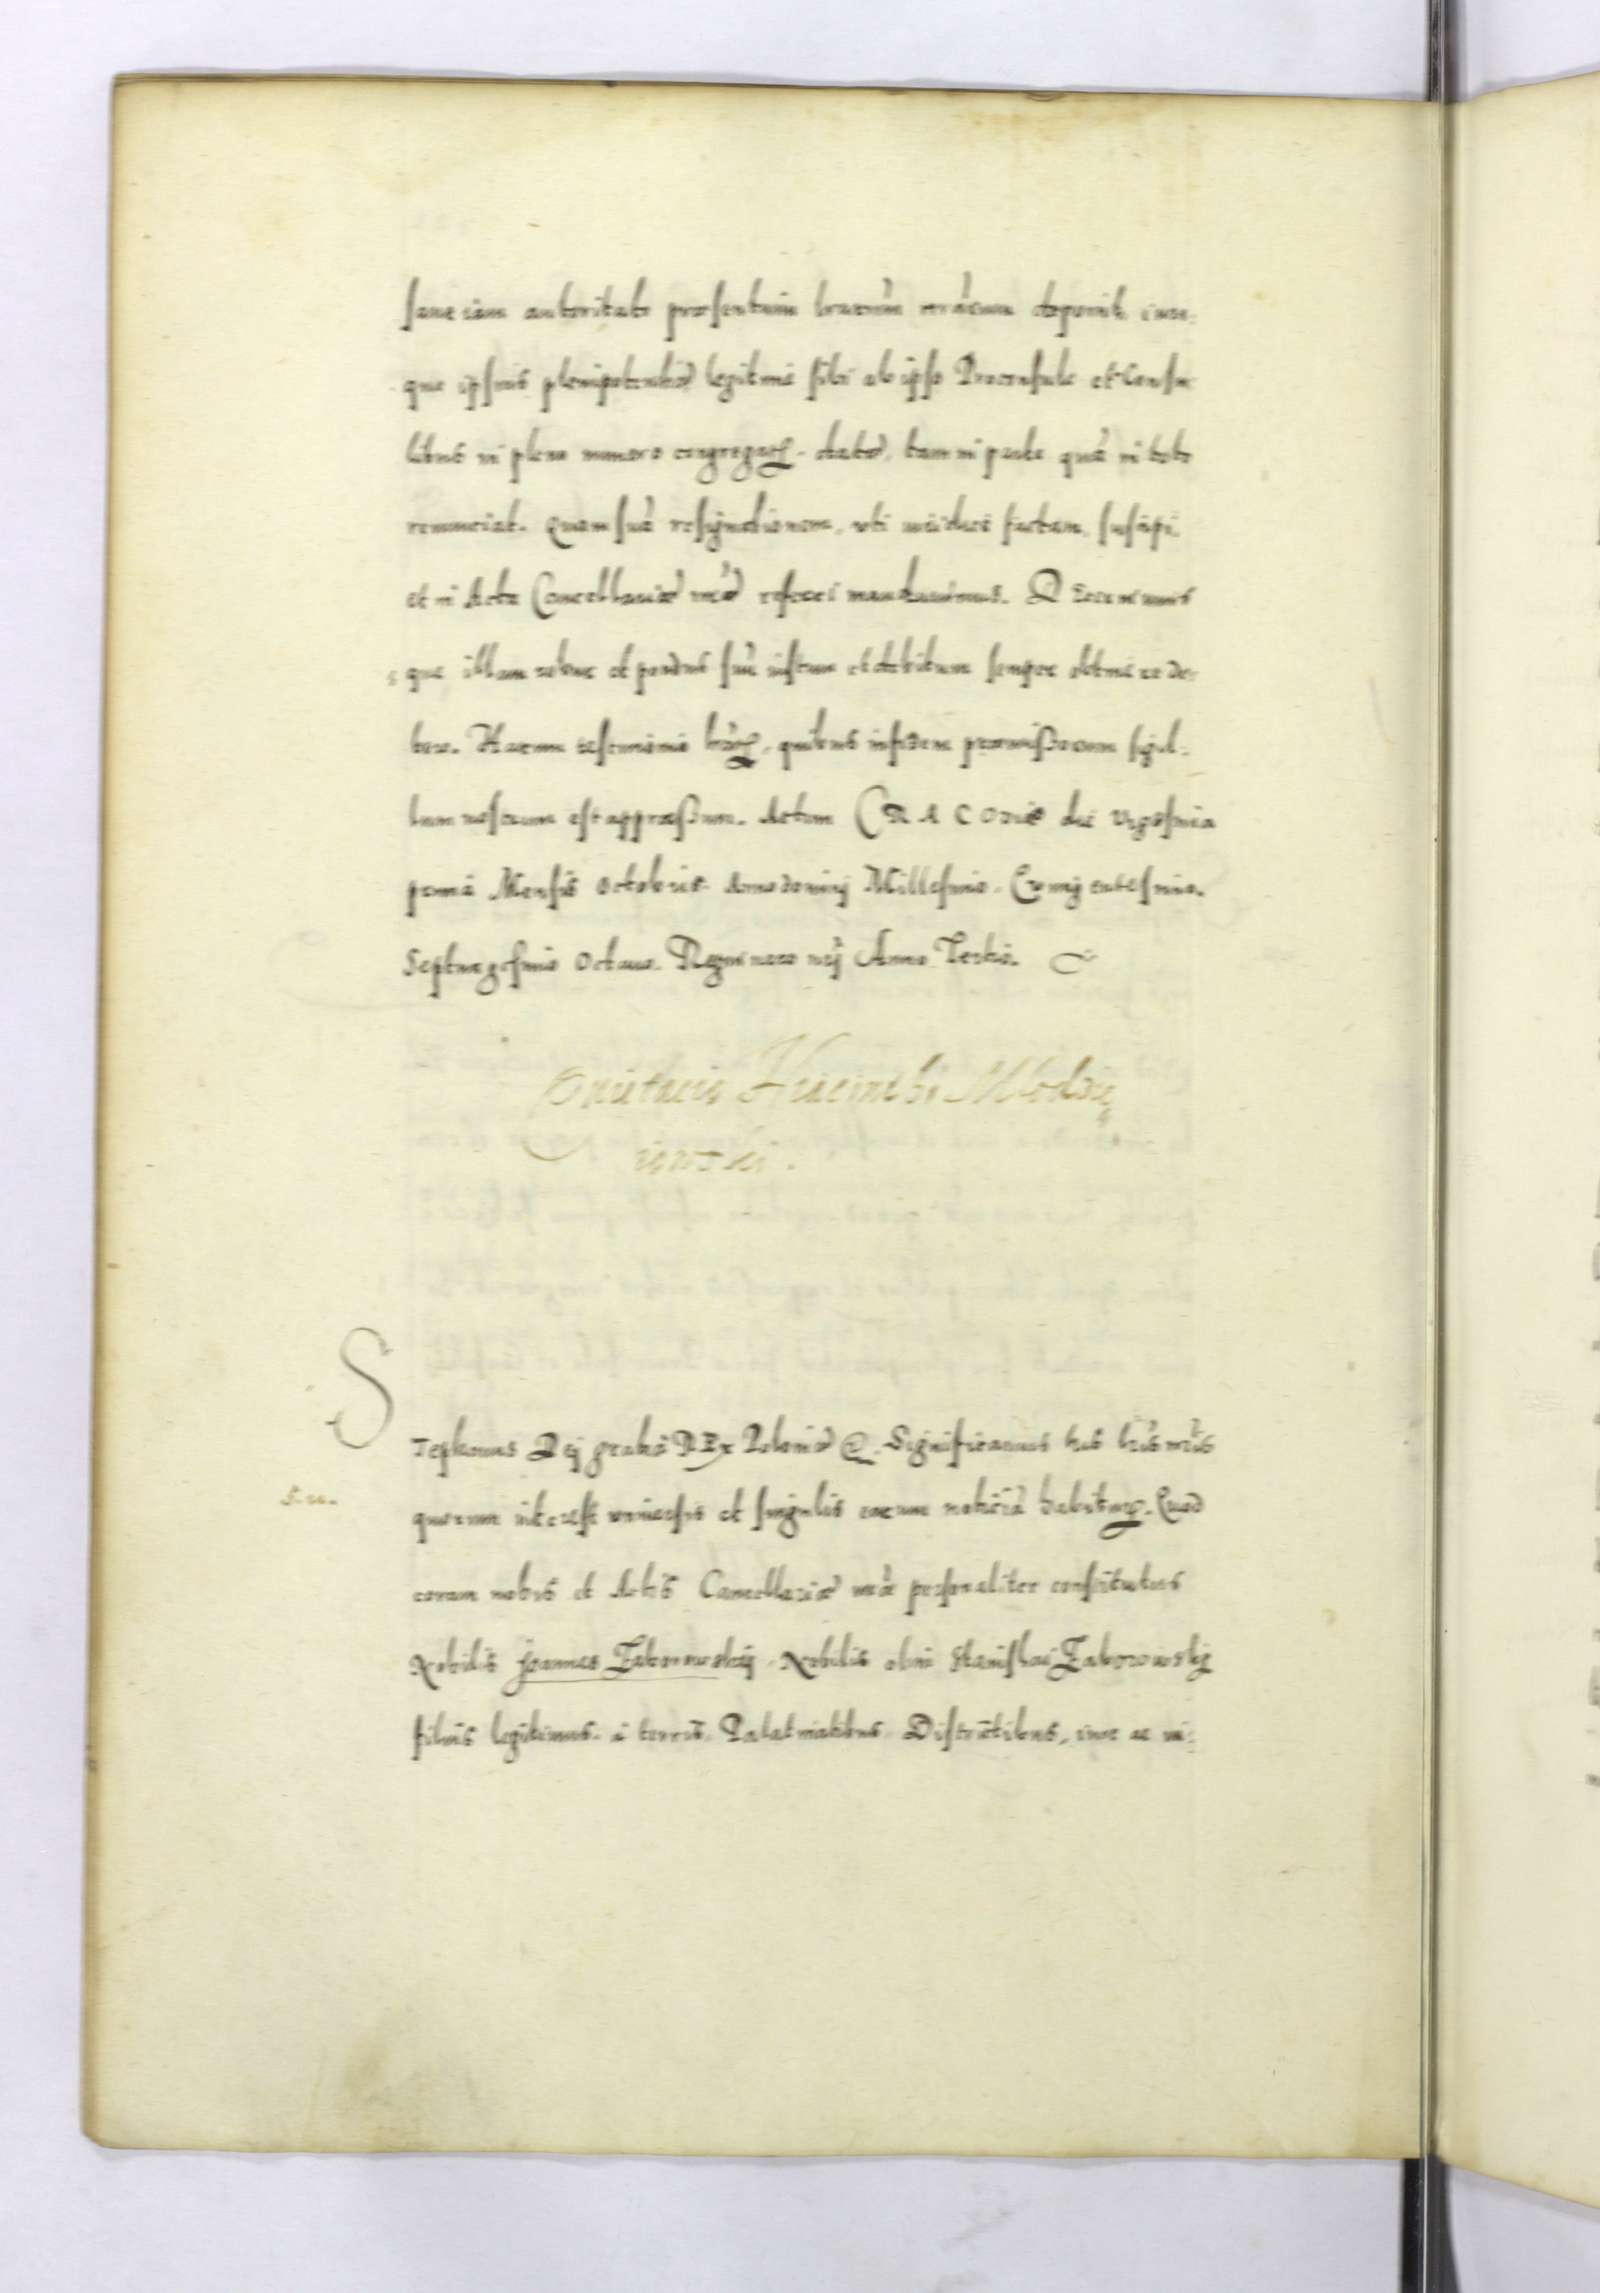 autoritate præsentium lrarum nrarum deponit, iuri-
que ipsius plenipotentiæ legitime sibi ab ipso Proconsule et Consu-
libus in pleno numero congregat. datæ, tam in parte quā in toto
renunciat. Quam suā resignationem, uti iuridice factam, suscipi
et in Acta Cancellariæ nræ referri mandauimus. Decernimus
que illam robur et pondus suū iustum et debitum semper obtinere de-
bere. Harum testimonio lrar, quibus in fidem præmissorum sigil-
lum nostrum est appressum. Actum CRACOVIÆ die Vigesima
prima Mensis Octobris Anno dominij Millesimo Quingentesimo
Septuagesimo Octauo. Regni vero nrj Anno Tertio.
Quitacio Hiacinthi Młodzie
iowski.
Stephanus Dej gratia REx Poloniæ &. Significamus his lris nris
quorum interest vniuersis et singulis earum noticiā habitur. Quod
coram nobis et Actis Cancellariæ nræ personaliter constitutus
Nobilis Joannes Zaborowskij, Nobilis olim Stanislai Zaborowskij
filius legitimus. à terris, Palatinatibus, Districtibus, iure ac iu-